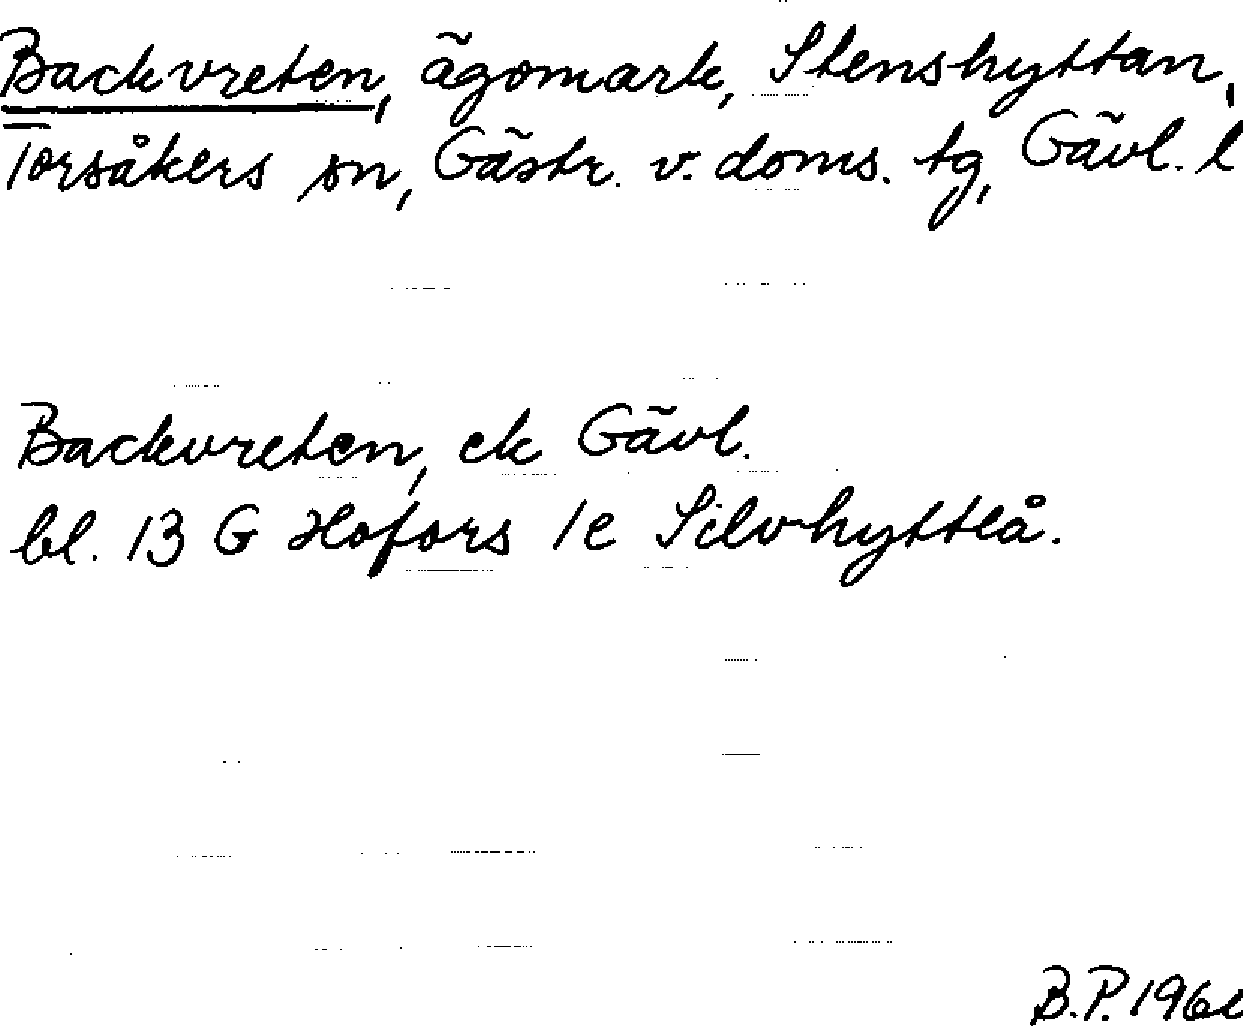 Backvreten, ägomark, Stenshyttan,
Torsåkers sn, Gästr. v. doms. tg, Gävl. l
Backvreten, ek Gävl.
bl. 13 G Hofors 1e Silvhytteå.
B.P. 196